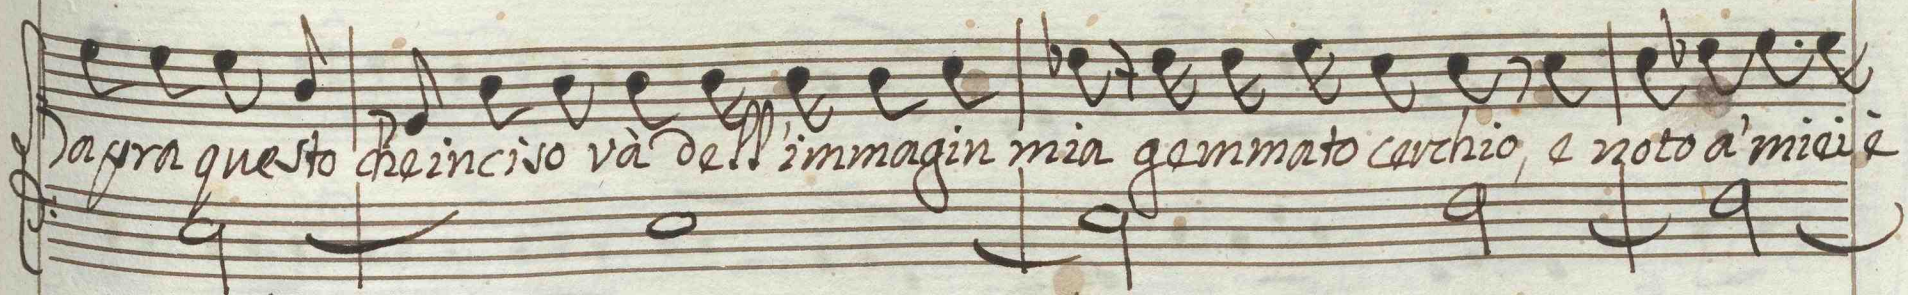 Dapra questo che inciso và dell'immagin mia gemmato cerchio, e noto a' miei è